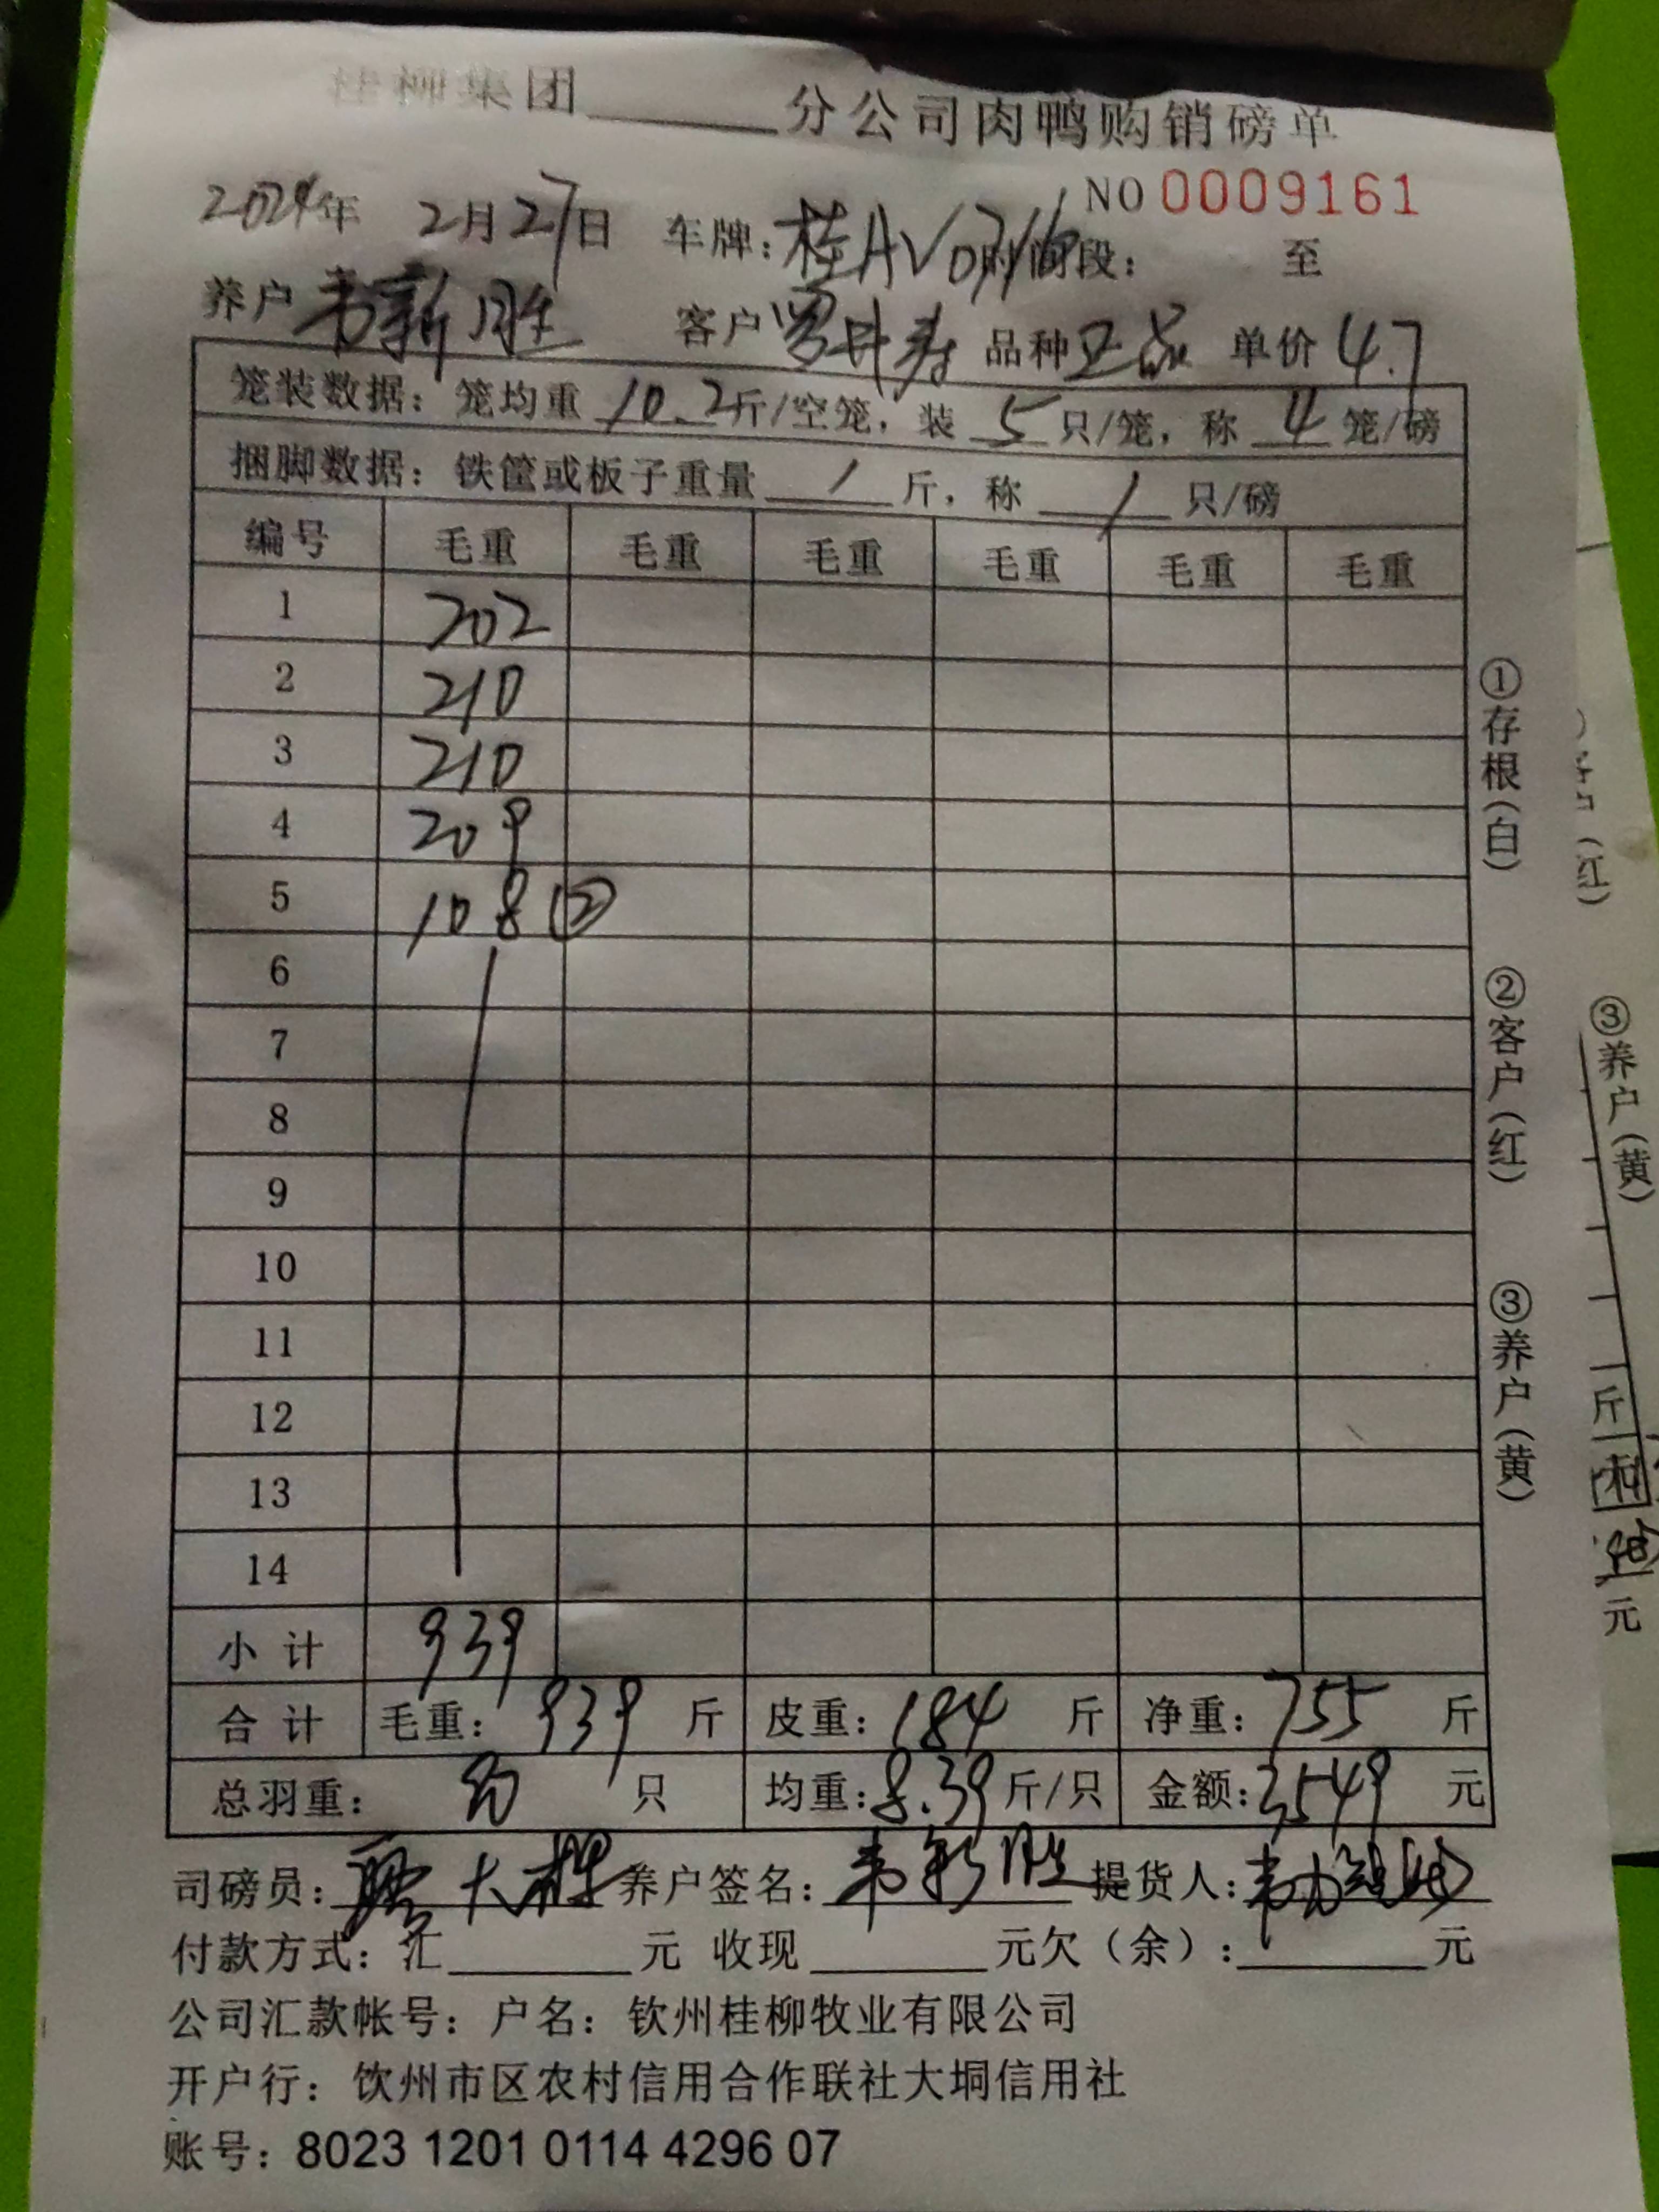 桂柳集团______分公司肉鸭购销磅单
NO 0009161
2024年 2月27日 车牌:桂AV 时间段: 至
养户 韦新胜 客户 罗 寿 品种 正品 单价 4.7
笼装数据:笼均重 10.2 斤/空笼,装 5 只/笼,称 4 笼/磅
捆脚数据:铁筐或板子重量 / 斤,称 / 只/磅
编号 毛重 毛重 毛重 毛重 毛重 毛重
1 202
2 210
3 210
4 209
5 108 ②
6
7
8
9
10
11
12
13
14
小计 939
合计 毛重: 939 斤 皮重: 184 斤 净重: 755 斤
总羽重: 90 只 均重: 8.39 斤/只 金额: 3549 元
司磅员: 大 养户签名: 韦新胜 提货人: 韦
付款方式:汇______元 收现______元欠(余):______元
公司汇款帐号:户名:钦州桂柳牧业有限公司
开户行:饮州市区农村信用合作联社大垌信用社
账号:8023 1201 0114 4296 07
①存根(白)
②客户(红)
③养户(黄)
(红)
③养户(黄)
斤
元